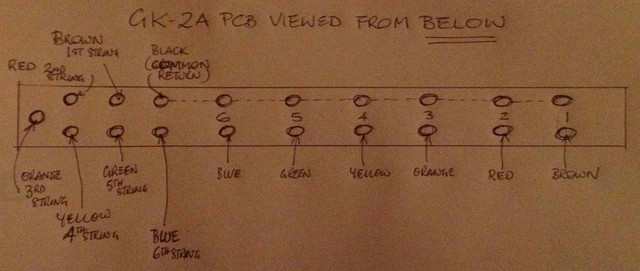 GK-2A PCB VIEWED FROM BELOW
BROWN
1ST STRING
RED 2ND STRING
BLACK
(COMMON
RETURN)
6 5 4 3 2 1
ORANGE
3RD
STRING
YELLOW
4TH STRING
GREEN
5TH
STRING
BLUE
6TH STRING
BLUE
GREEN
YELLOW
ORANGE
RED
BROWN